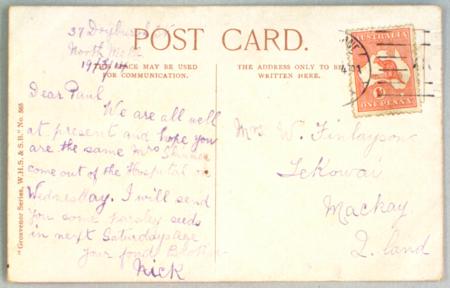 37
North
POST CARD.
THIS SPACE MAY BE USED
FOR COMMUNICATION.
THE ADDRESS ONLY TO BE
WRITTEN HERE.
AUSTRALIA
ONE PENNY
Dear Paul
We are all well
at present and hope you
are the same Mrs
come out of the Hospital
Wednesday. I will send
you some parsley seeds
in next Saturdays
Your fond Brother
Nick
Mrs W. Finlayson
Mackay
Q. land
"Grosvenor Series, W.H.S. & S.B." No. 565